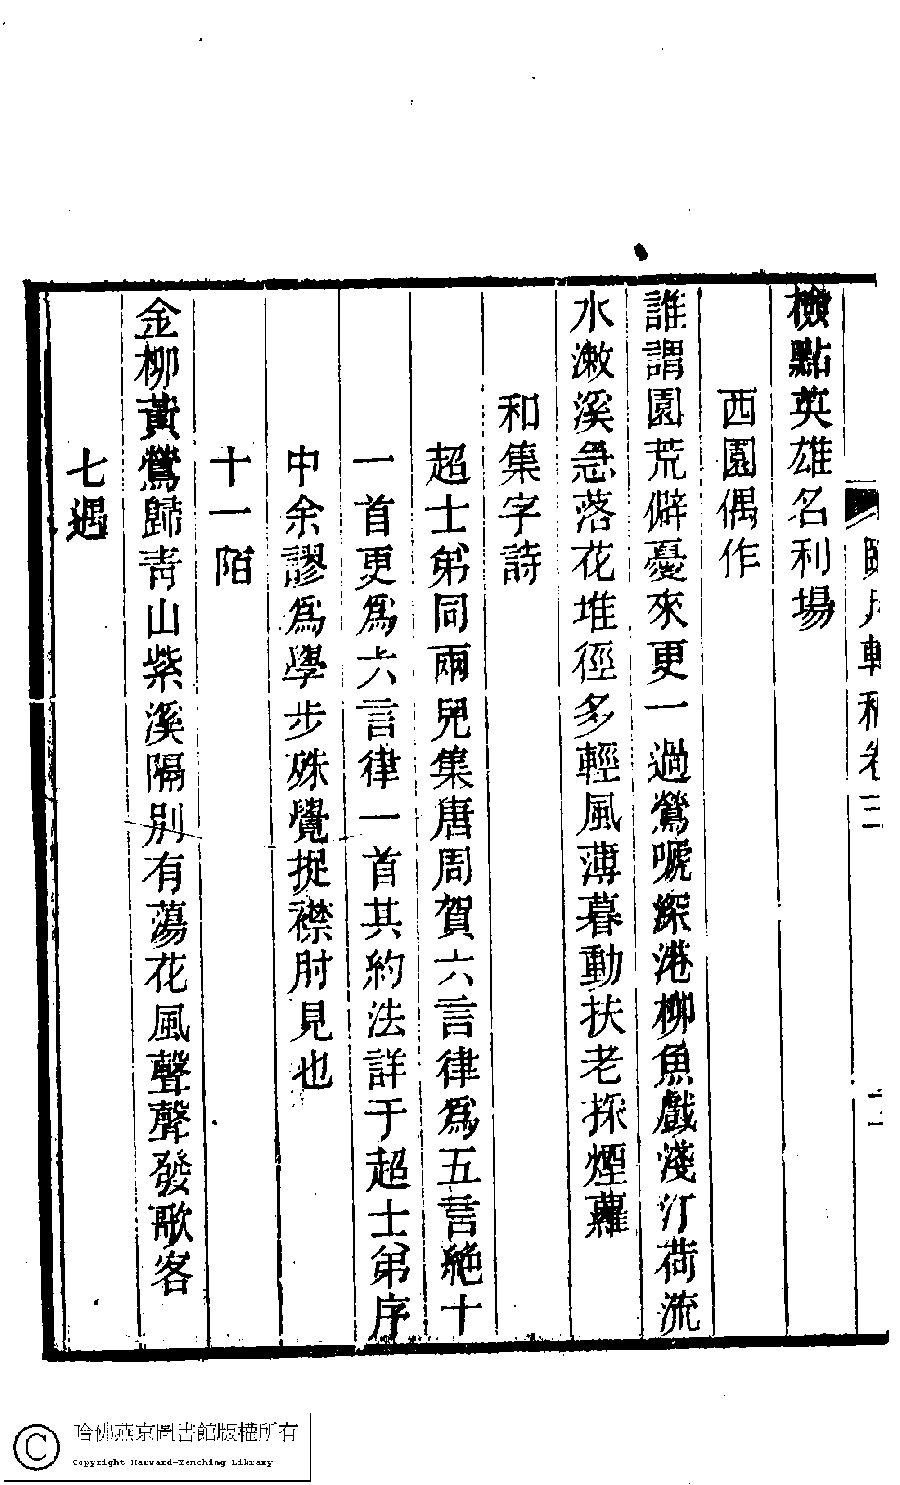 檢點英雄名利場
西園偶作
誰謂園荒僻憂來更一過鶯嗁深港柳魚戲淺汀荷流
水漱溪急落花堆徑多輕風薄暮動扶老採煙蘿
和集字詩
超士弟同兩兒集唐周賀六言律爲五言絶十
一首更爲六言律一首其約法詳于超士弟序
中余謬爲學步殊覺捉襟肘見也
十一陌
金柳黃鶯歸青山紫溪隔別有蕩花風聲聲發歌客
七遇
軒稿卷三
哈佛燕京圖書館版權所有
Copyright Harvard-Yenching Library